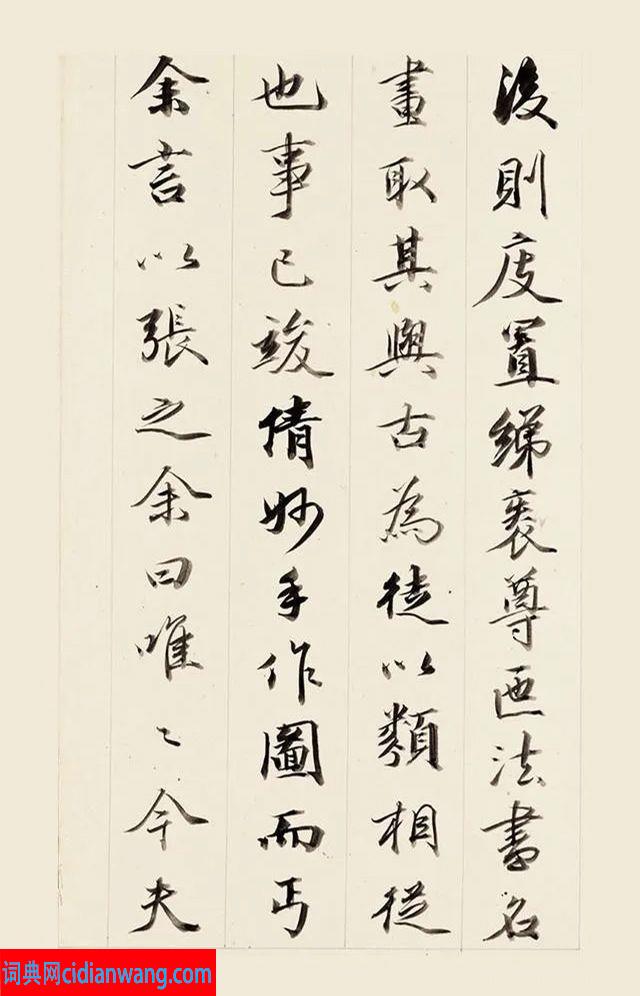 後則庋置綈袠尊匜法書名
畫取其與古為徒以類相從
也事已竣倩妙手作圖而丐
余言以張之余曰唯〻今夫
词典网cidianwang.com